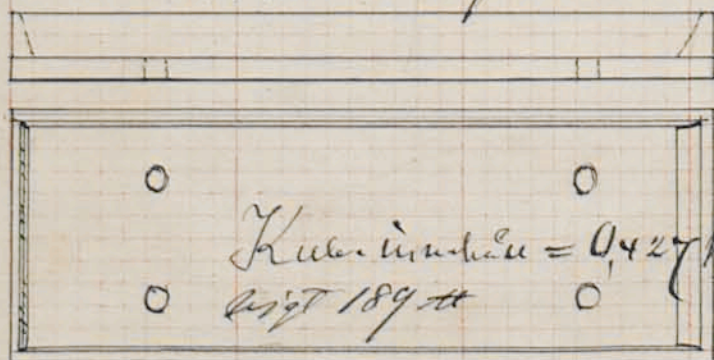 Kub. innehåll = 0,427
vigt 189 ℔